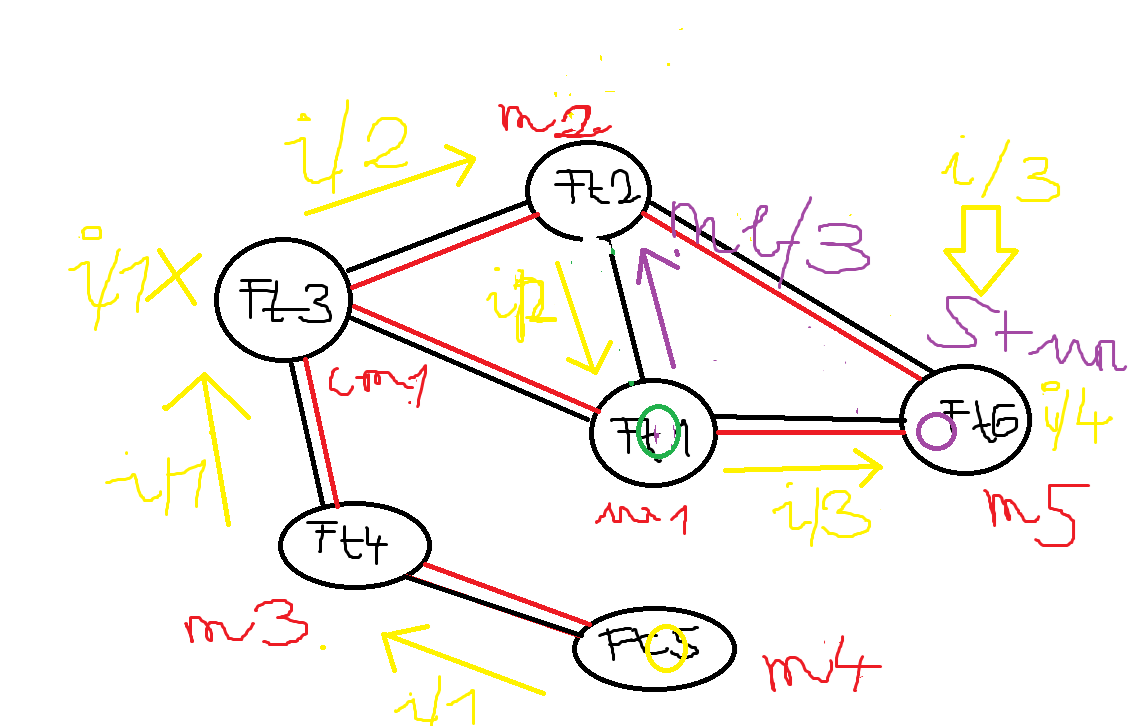 m2
i/2
Ft2
i/3
mt/3
i/1X
Ft3
i/2
Stun
cm1
Ft1
Ft6
i/4
i/1
m1
i/3
m5
Ft4
m3
Ft5
m4
i/1